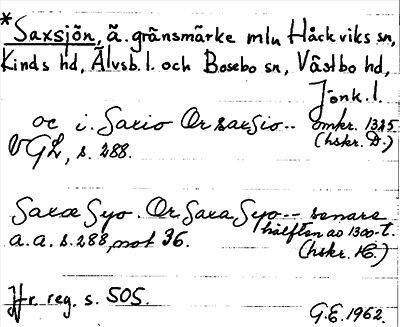 *Saxsjön, ä. gränsmärke mln Håckviks sn,
Kinds hd, Älvsb. l. och Bosebo sn, Västbo hd,
Jönk. l.
oc i. Saxio Or saxsio.. omkr. 1325
VGL, s. 288. (hskr. D.)
Saxæ Syo. Or Saxa Syo.. senare
hälften av 1300-t.
a.a. s. 288, not 36. (hskr. K.)
Jfr. reg. s. 505.
G.E. 1962.